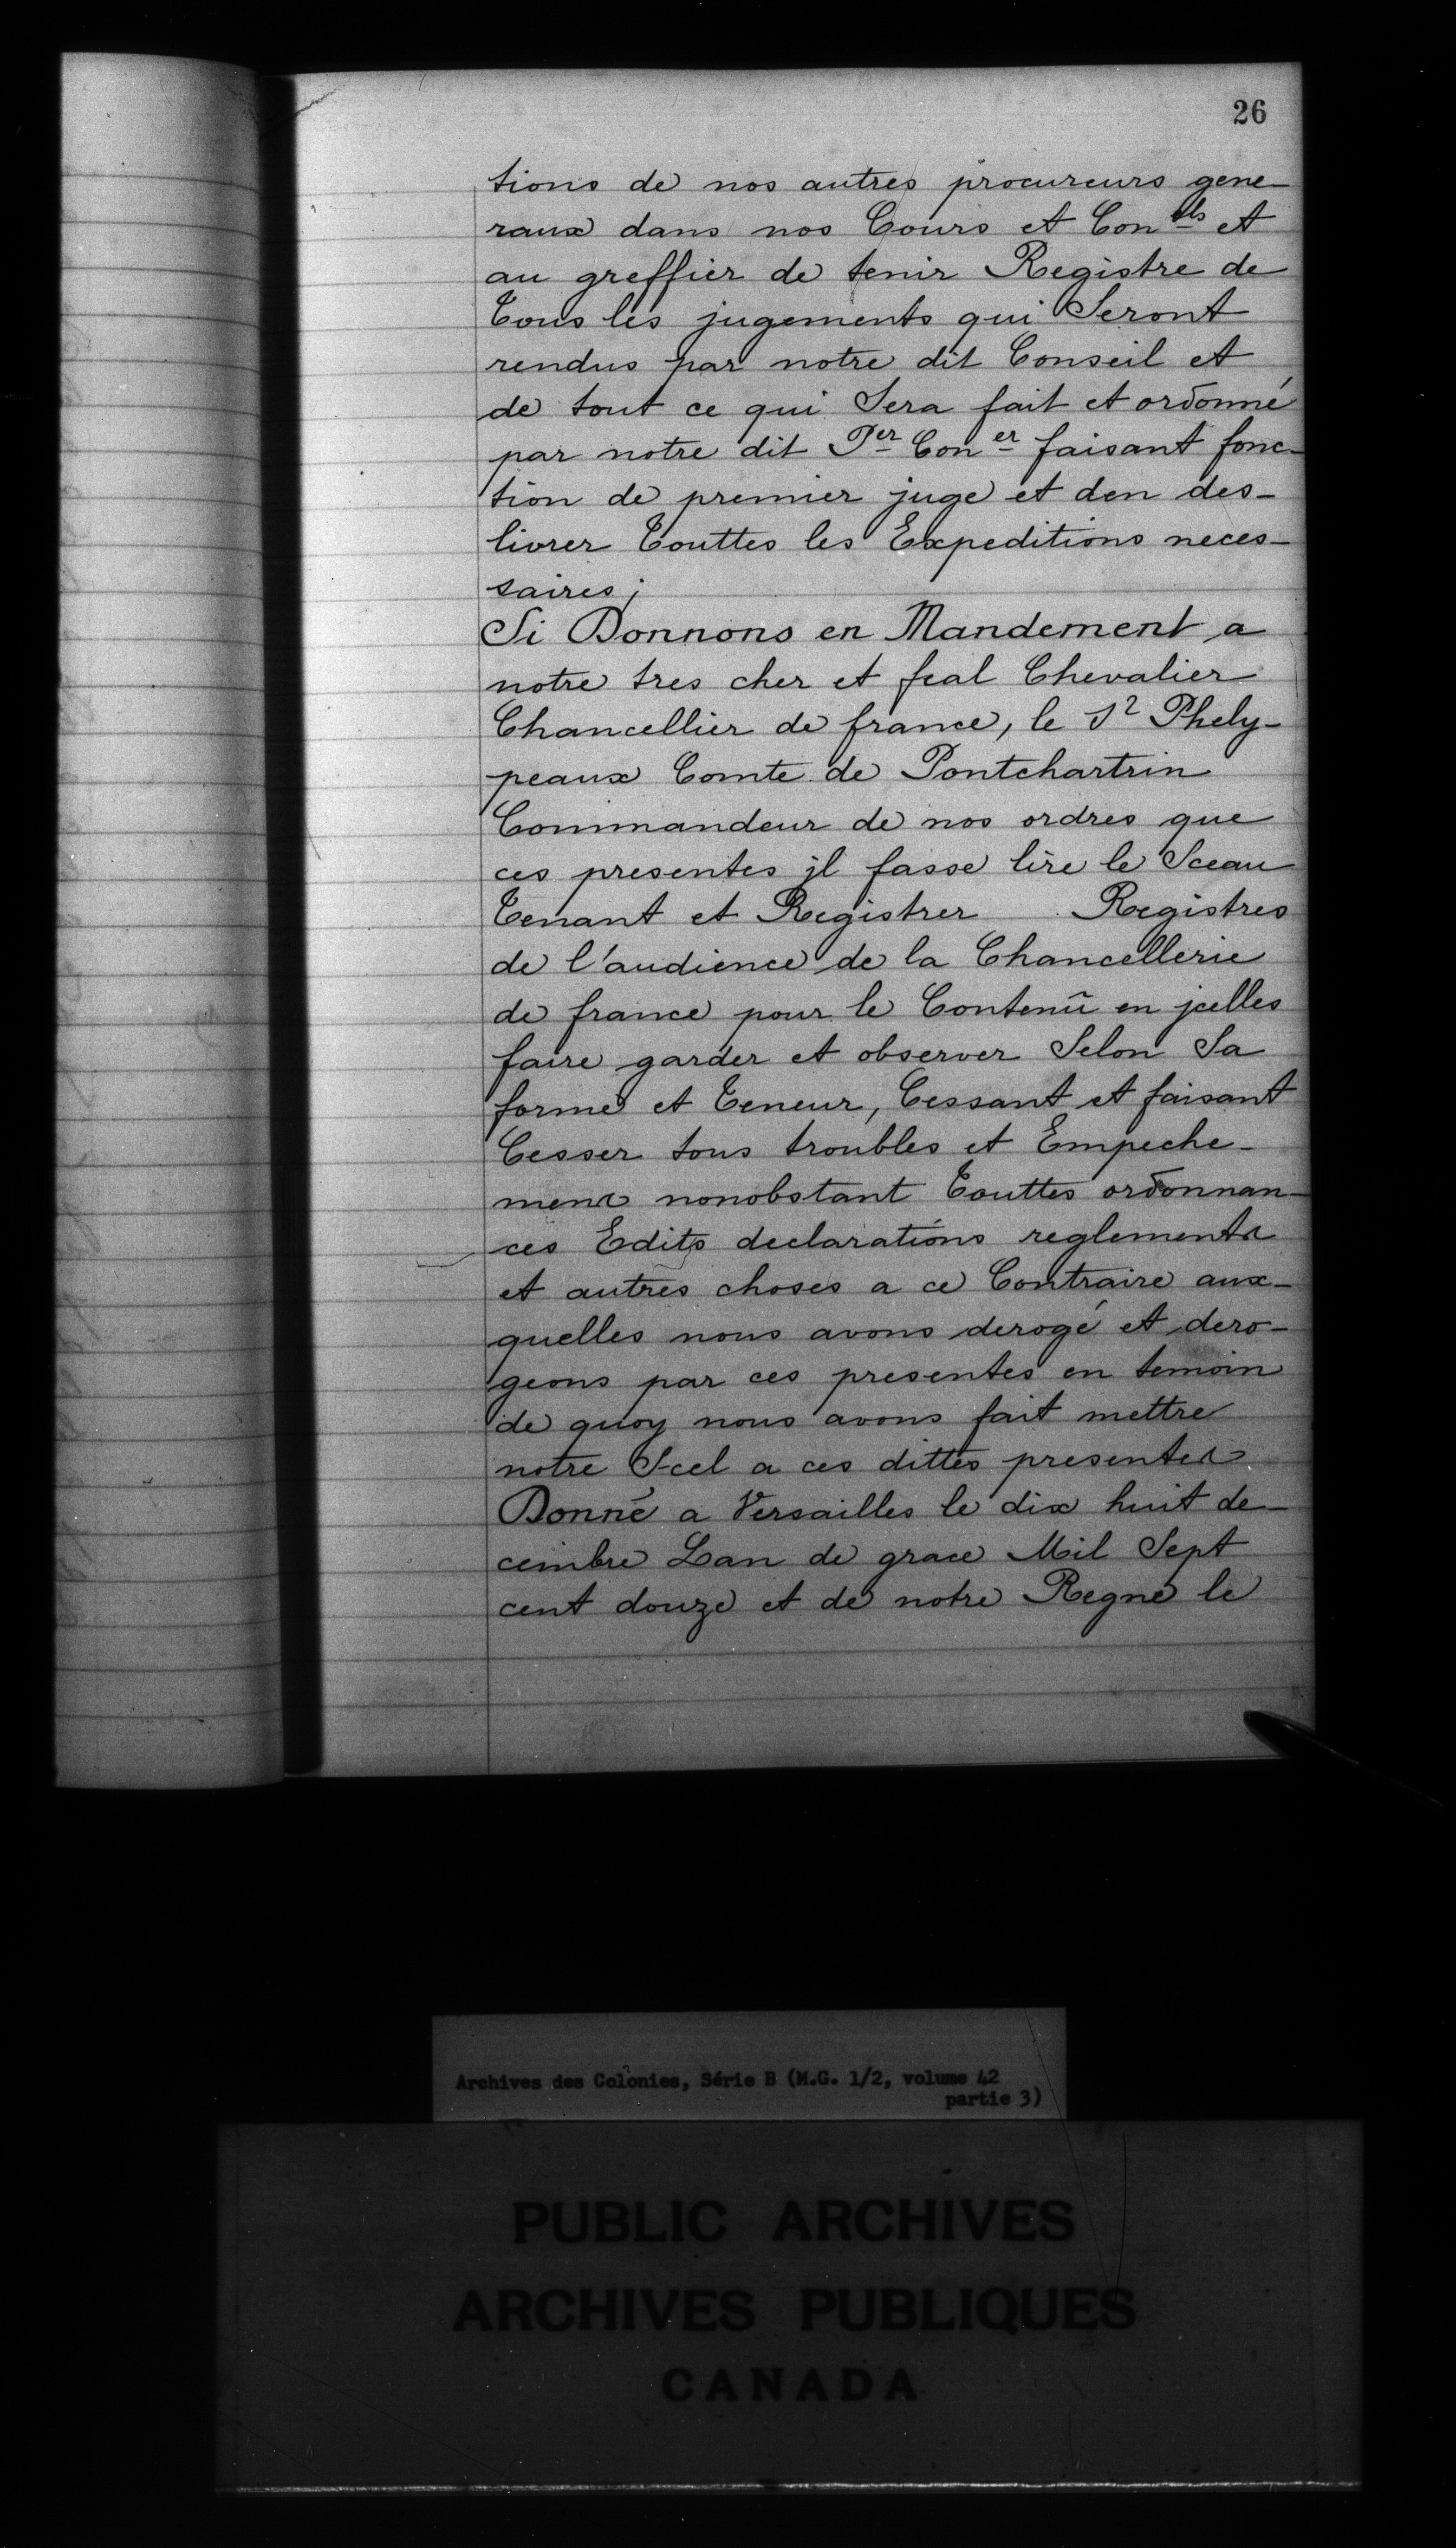 26
tions de nos autres procureurs gene-
raux dans nos Cours et Con.els et
au greffier de tenir Registre de
Tous les jugements qui Seront
rendus par notre dit Conseil et
de tout ce qui Sera fait et ordonné
par notre dit Per Coner faisant fonc-
tion de premier juge et den des-
livrer Touttes les Expeditions neces-
saires;
Si Donnons en Mandement a
notre tres cher et feal Chevalier
Chancellier de france, le Sr Phely-
peaux Comte de Pontchartrin
Commandeur de nos ordres que
ces presentes jl fasse lire le Sceau
Tenant et Registrer Registres
de l'audience de la Chancellerie
de france pour le Contenû en jcelles
faire garder et observer Selon Sa
forme et Teneur, Cessant et faisant
Cesser tous troubles et Empeche-
mens nonobstant Touttes ordonnan-
ces Edits declarations reglements
et autres choses a ce Contraire aux-
quelles nous avons derogé et dero-
geons par ces presentes en temoin
de quoy nous avons fait mettre
notre Scel a ces dittes presentes
Donné a Versailles le dix huit de-
cembre Lan de grace Mil Sept
cent douze et de notre Regne le
Archives des Colonies, Série B (M.G. 1/2, volume 42
partie 3)
PUBLIC ARCHIVES
ARCHIVES PUBLIQUES
CANADA